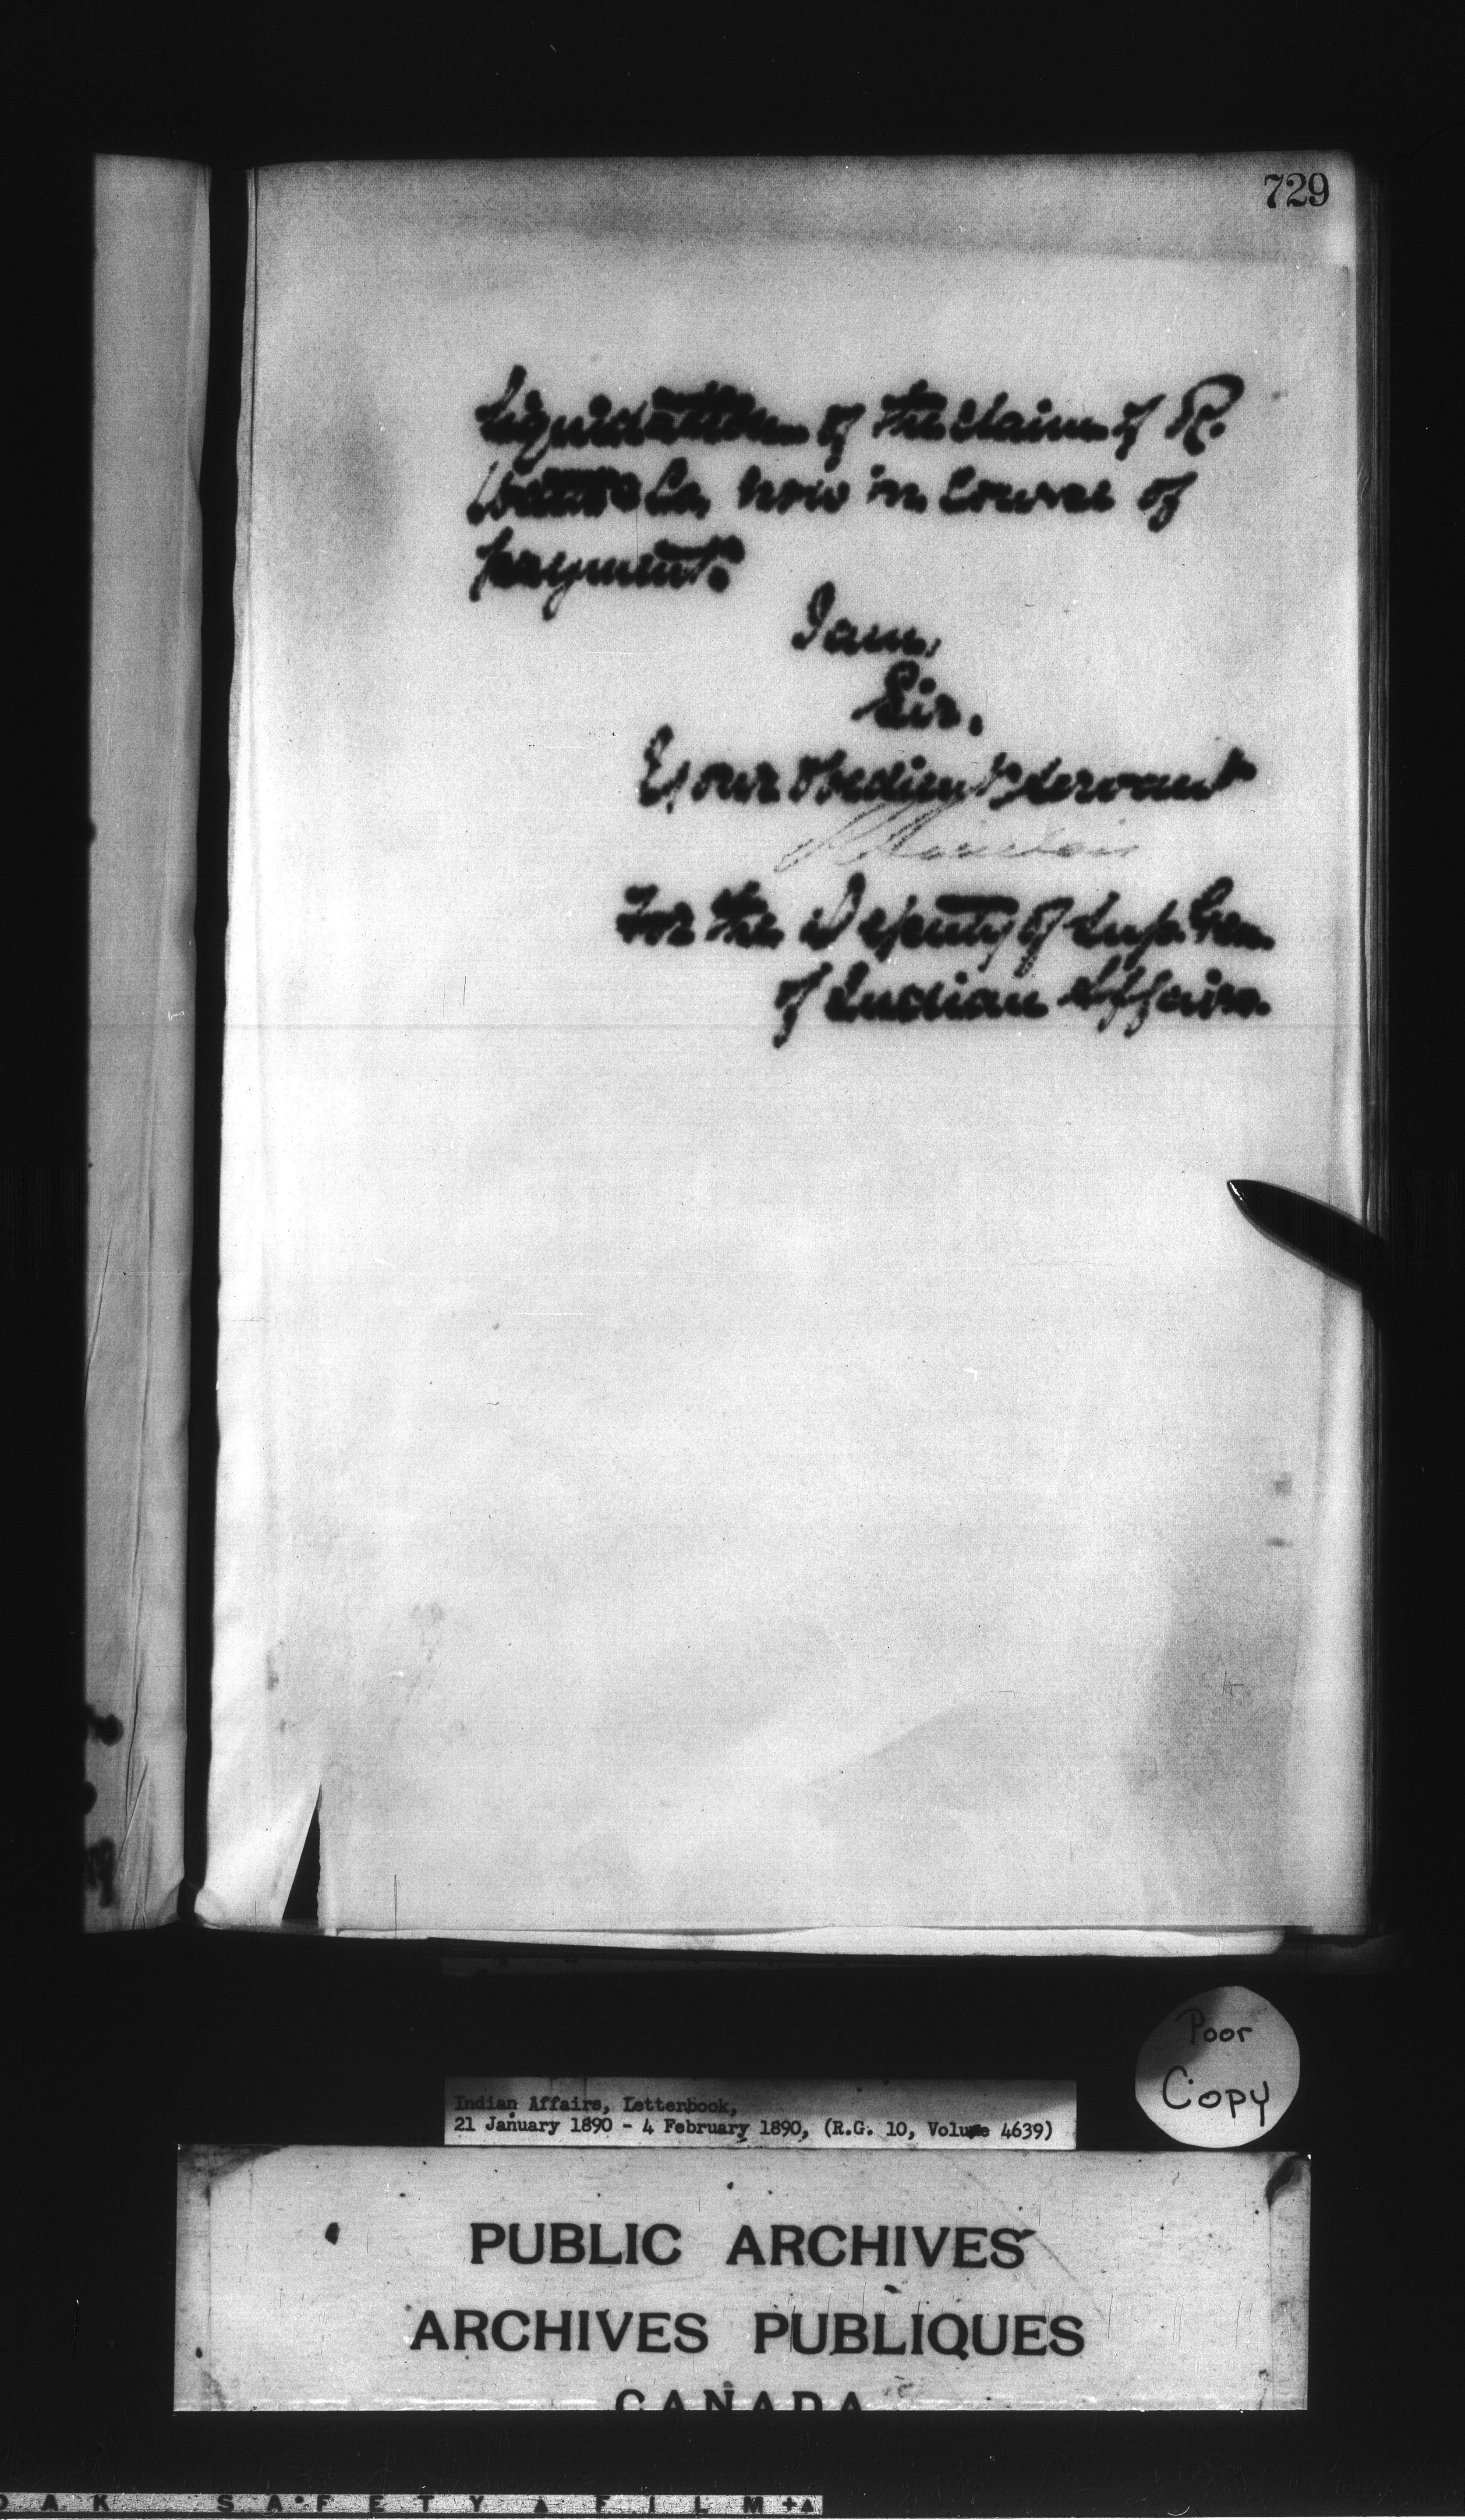 729
liquidation of the claim of R.
& Co, now in course of
payment.
I am,
Sir,
Your obedient servant
Sinclair
For the Deputy of Sup. Gen.
of Indian Affairs.
Poor
Copy
Indian Affairs, Letterbook,
21 January 1890 - 4 February 1890, (R.G. 10, Volume 4639)
PUBLIC ARCHIVES
ARCHIVES PUBLIQUES
CANADA
SAFETY FILM